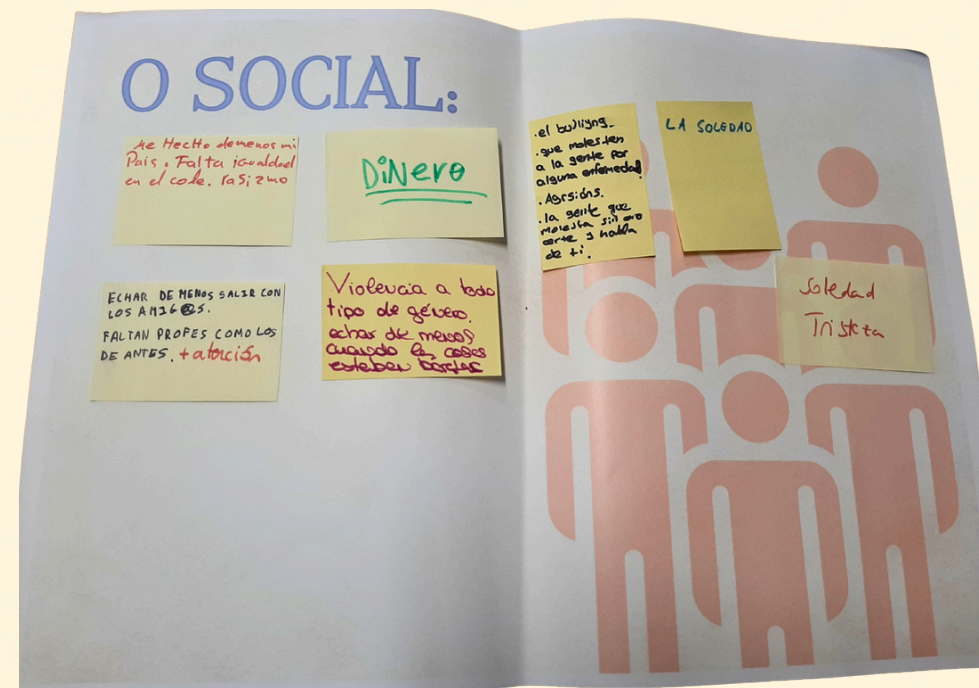 O SOCIAL:
Me Hecho demenos mi
Pais. Falta igualdad
en el cole. rasizmo
DiNero
ECHAR DE MENOS SALIR CON
LOS AMIG@S.
FALTAN PROFES COMO LOS
DE ANTES. + atención
Violencia a todo
tipo de género.
echar de menos
cuando las cosas
estaban
.el bulliyng
.que molesten
a la gente por
alguna enfermedad
.Agrsións.
.la gente que
molesta sin
y habla
de ti.
LA SOLEDAD
Soledad
Tristeza